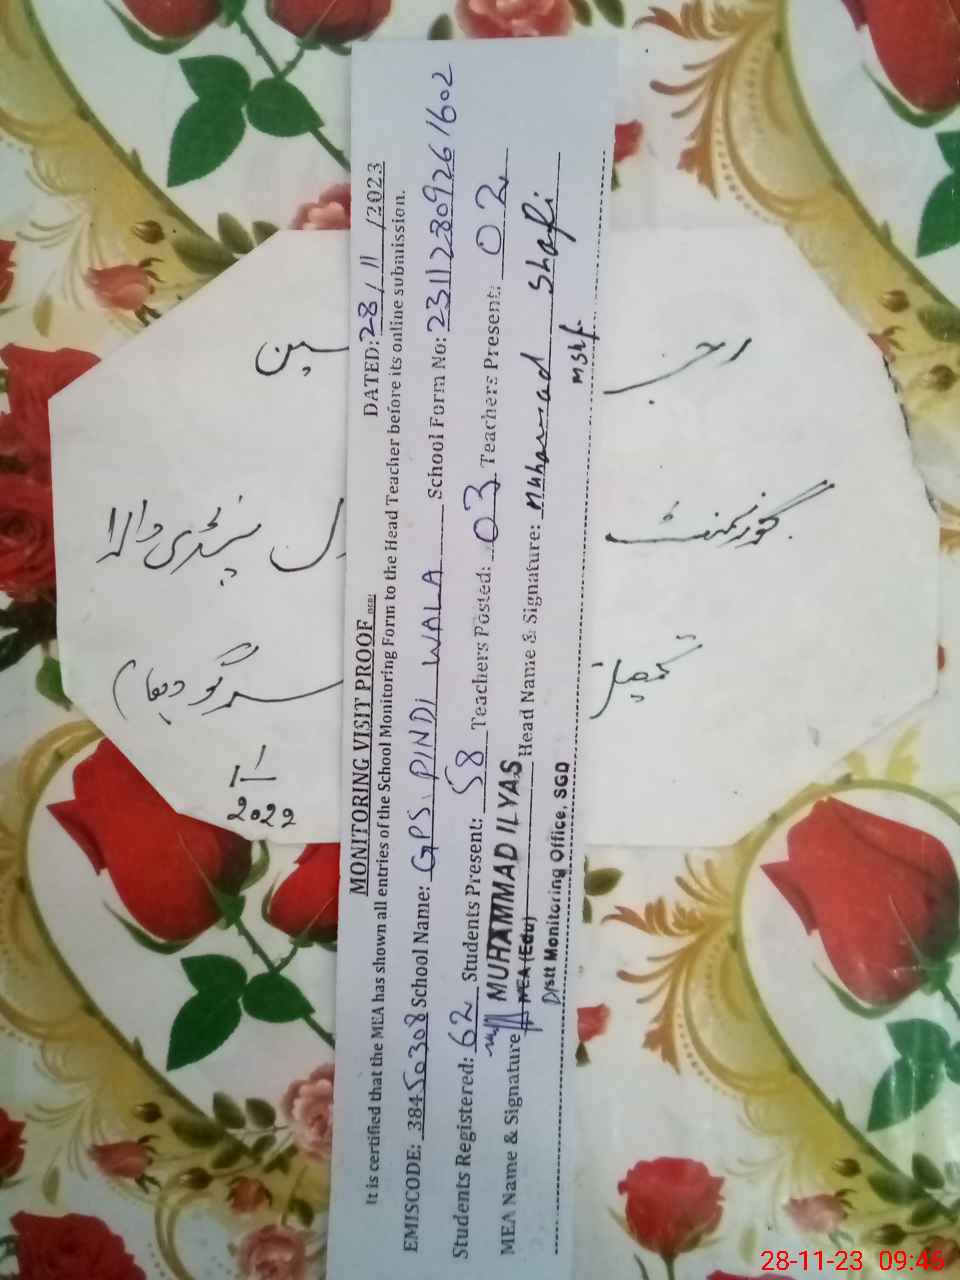 MONITORING VISIT PROOF
DATED: 28/11/2023
It is certified that the MEA has shown all entries of the School Monitoring Form to the Head Teacher before its online submission.
EMISCODE: 38450308 School Name: GPS. PINDI WALA School Form No: 23112809261602
Students Registered: 62 Students Present: 58 Teachers Posted: 03 Teachers Present: 02
MEA Name & Signature MUHAMMAD ILYAS Head Name & Signature: Muhammad Shafi
MEA (Edu)
Distt Monitoring Office, SGD
گورنمنٹ
ل پنڈی والا
سرگودھا
1/1
2022
28-11-23 09:45